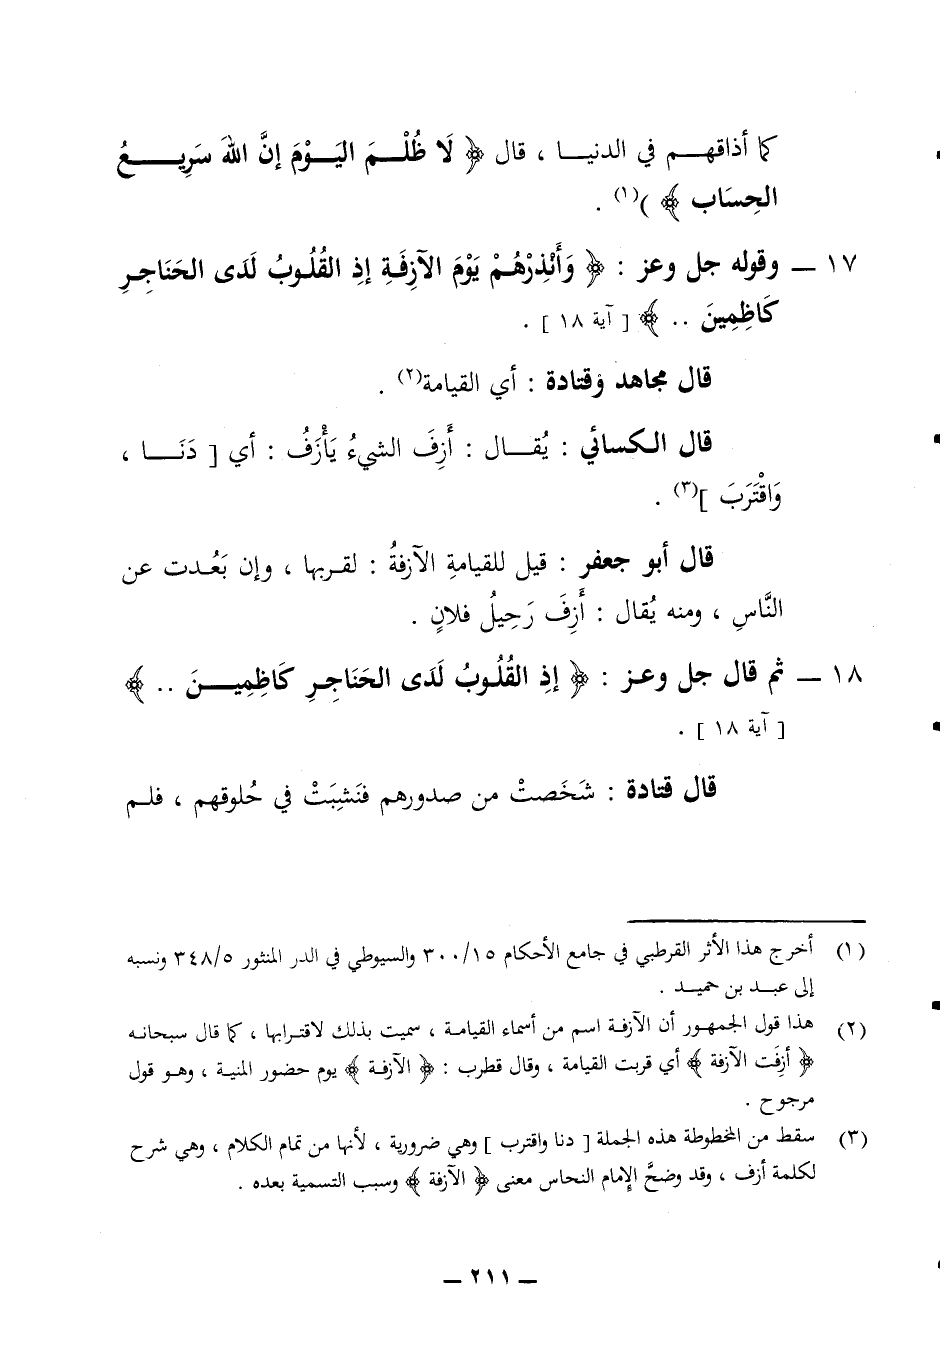 كما أذاقهـــم في الدنيـــا ، قال ﴿ لَا ظُلْـــمَ اليَـــوْمَ إنَّ اللهَ سَرِيـــــعُ
الحِسَاب ﴾ )(١) .
١٧ ــ وقوله جل وعز : ﴿ وَأَنْذِرْهُـمْ يَوْمَ الآزِفَـةِ إذِ القُلُـوبُ لَدَى الحَنَاجِـرِ
كَاظِمِينَ .. ﴾ [ آية ١٨ ] .
قال مجاهد وقتادة : أي القيامة(٢) .
قال الـكسائي : يُقـــال : أَزِفَ الشيءُ يَأْزَفُ : أي [ دَنَـــا ،
وَاقْتَرَبَ ](٣) .
قال أبو جعفر : قيل للقيامةِ الآزفةُ : لقـربها ، وإن بَعُـدت عن
النَّاسِ ، ومنه يُقال : أَزِفَ رَحِيلُ فلانٍ .
١٨ ــ ثم قال جل وعـز : ﴿ إذِ القُلُـوبُ لَدَى الحَنَاجِـرِ كَاظِمِيـــنَ .. ﴾
[ آية ١٨ ] .
قال قتادة : شَخَصتْ من صدورهم فنَشِبَتْ في حُلوقهم ، فلـم
(١) أخرج هذا الأثر القرطبي في جامع الأحكام ٣٠٠/١٥ والسيوطي في الدر المنثور ٣٤٨/٥ ونسبه
إلى عبـد بن حميـد .
(٢) هذا قول الجمهـور أن الآزفـة اسم من أسماء القيامـة ، سميت بذلك لاقتـرابها ، كما قال سبحانـه
﴿ أزفَت الآزفة ﴾ أي قربت القيامة ، وقال قطرب : ﴿ الآزفـة ﴾ يوم حضور المنيـة ، وهـو قول
مرجوح .
(٣) سقط من المخطوطة هذه الجملة [ دنا واقترب ] وهي ضرورية ، لأنها من تمام الكلام ، وهي شرح
لكلمة أزف ، وقد وضحَّ الإمام النحاس معنى ﴿ الآزفة ﴾ وسبب التسمية بعده .
ــ ٢١١ ــ